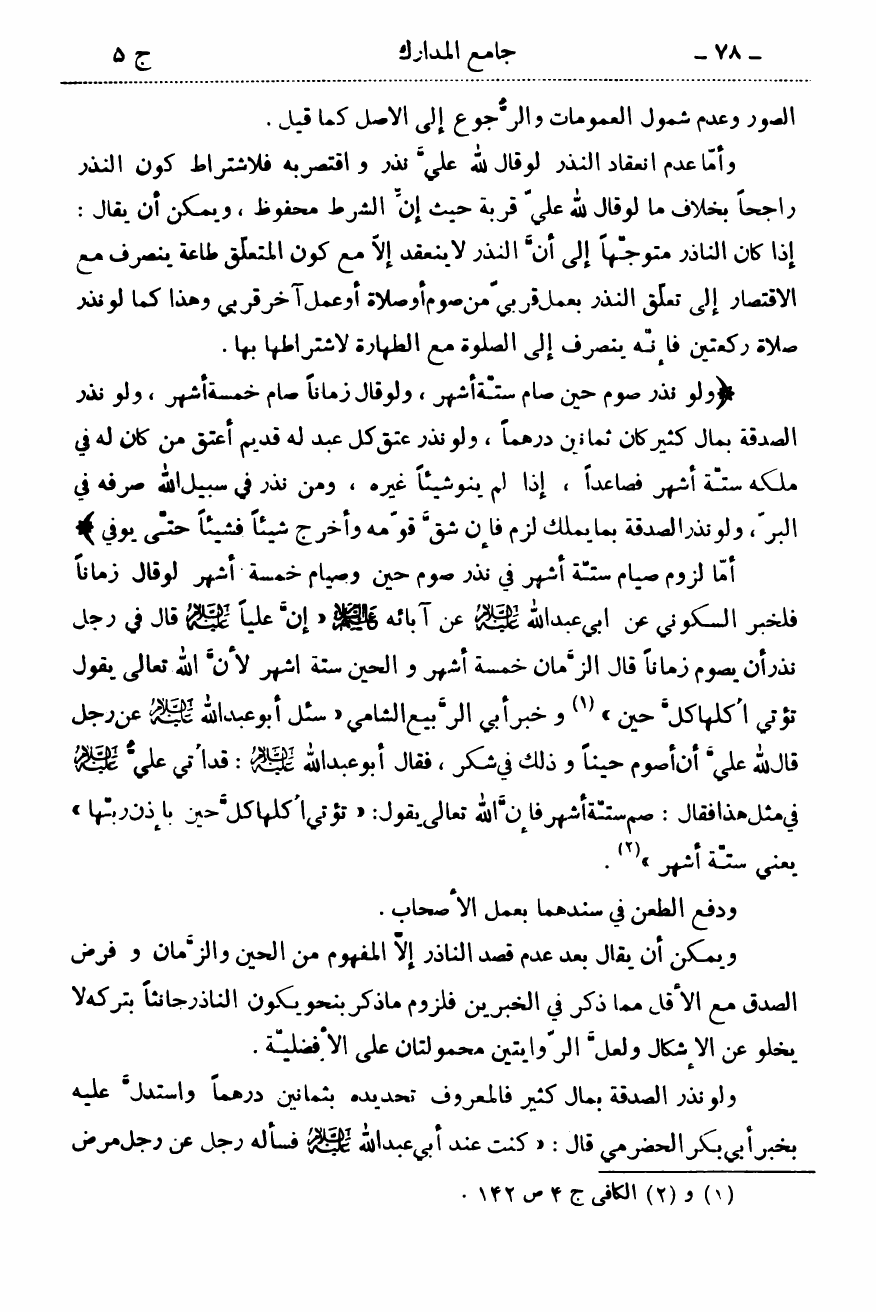 ـ ٧٨ ـ جامع المدارك ج ۵
الصور وعدم شمول العمومات والرُّجوع إلى الاصل كما قيل .
وأمّا عدم انعقاد النذر لوقال لله عليَّ نذر و اقتصر به فلاشتراط كون النذر
راجحاً بخلاف ما لوقال لله عليَّ قربة حيث إنَّ الشرط محفوظ ، ويمكن أن يقال :
إذا كان الناذر متوجّهاً إلى أنَّ النذر لاينعقد إلاّ مع كون المتعلّق طاعة ينصرف مع
الاقتصار إلى تعلّق النذر بعمل قربيّ من صوم أوصلاة أوعمل آخر قربي وهذا كما لو نذر
صلاة ركعتين فإنّه ينصرف إلى الصلوة مع الطهارة لاشتراطها بها .
﴿ولو نذر صوم حين صام ستّة أشهر ، ولوقال زماناً صام خمسة أشهر ، ولو نذر
الصدقة بمال كثير كان ثمانين درهماً ، ولو نذر عتق كل عبد له قديم أعتق من كان له في
ملكه ستّة أشهر فصاعداً ، إذا لم ينوشيئاً غيره ، ومن نذر في سبيل الله صرفه في
البرّ ، ولو نذر الصدقة بما يملك لزم فإن شقَّ قوّمه وأخرج شيئاً فشيئاً حتّى يوفي ﴾
أمّا لزوم صيام ستّة أشهر في نذر صوم حين وصيام خمسة أشهر لوقال زماناً
فلخبر السكوني عن ابي عبدالله عليه السلام عن آبائه عليهم السلام « إنَّ علياً عليه السلام قال في رجل
نذر أن يصوم زماناً قال الزَّمان خمسة أشهر و الحين ستة اشهر لأنَّ الله تعالى يقول
تؤتي اُكلها كلَّ حين » (١) و خبر أبي الرَّبيع الشامي « سئل أبو عبدالله عليه السلام عن رجل
قال لله عليَّ أن أصوم حيناً و ذلك في شكر ، فقال أبو عبدالله عليه السلام : قد اُتي عليٌّ عليه السلام
في مثل هذا فقال : صم ستّة أشهر فإنَّ الله تعالى يقول: « تؤتي اُكلها كلَّ حين بإذن ربّها »
يعني ستّة أشهر »(٢) .
ودفع الطعن في سندهما بعمل الأصحاب .
ويمكن أن يقال بعد عدم قصد الناذر إلاّ المفهوم من الحين والزَّمان و فرض
الصدق مع الأقل مما ذكر في الخبرين فلزوم ماذكر بنحو يكون الناذر حانثاً بتركه لا
يخلو عن الإشكال ولعلَّ الرّوايتين محمولتان على الأفضليّة .
ولو نذر الصدقة بمال كثير فالمعروف تحديده بثمانين درهماً واستدلَّ عليه
بخبر أبي بكر الحضرمي قال : « كنت عند أبي عبدالله عليه السلام فسأله رجل عن رجل مرض
(١) و (٢) الكافى ج ۴ ص ١۴٢ .